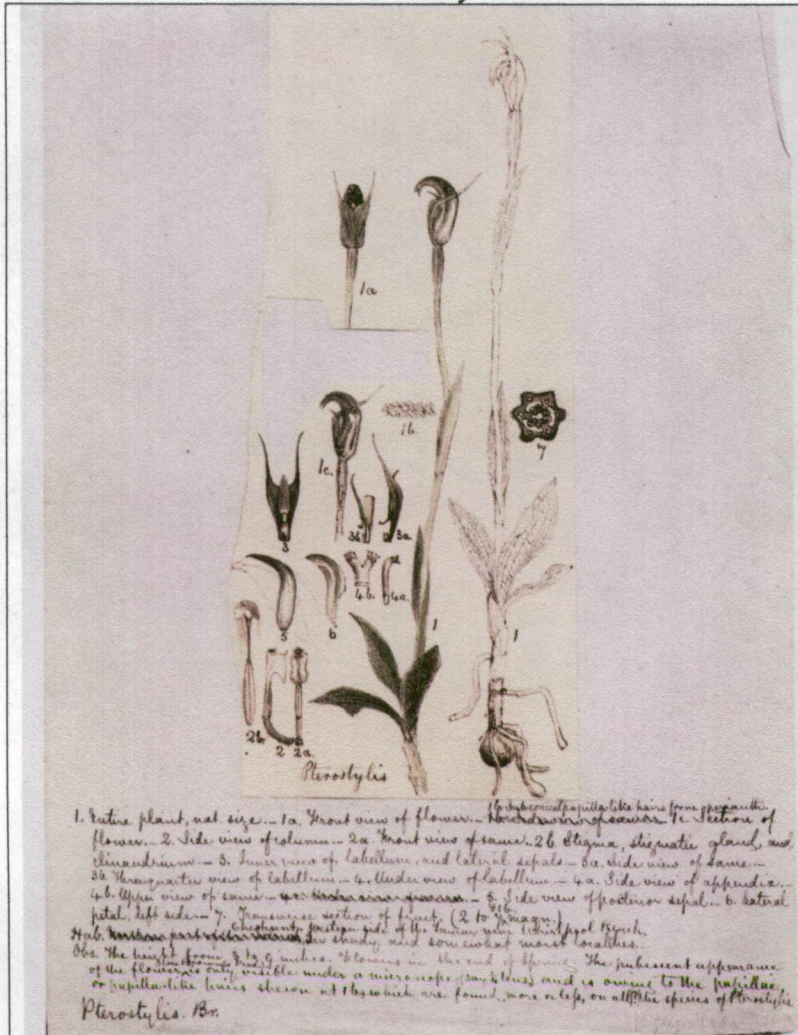 1a
1b
1c.
7
3
3b
3a
5
6
4.b.
4a
1
1
2b
2
2a
Pterostylis
1b. Subconical papilla-like hairs from perianth.
1. Entire plant, nat. size. — 1a. Front view of flower. — 1c Section of
flower. — 2. Side view of column. — 2a. Front view of same. — 2b. Stigma, stigmatic gland, and
clinandrium. — 3. Inner view of labellum, and lateral sepals. — 3a. Side view of same. —
3b. Threequarter view of labellum. — 4. Under view of labellum. — 4a. Side view of appendix. —
4.b. Upper view of same. — 5. Side view of posterior sepal. — 6. Lateral
petal, left side. — 7. Transverse section of fruit. (2 to 7, magn.)
Hab. Cheshunt, side of the near Liverpool
shady and somewhat moist localities.
Obs. The height from 8 to 9 inches. Flowers in the end of Spring. The pubescent appearance
of the flower is only visible under a microscope and is owing to the papillae
or papilla-like hairs shewn at 1b, which are found, more or less, on all the species of Pterostylis
Pterostylis. Br.